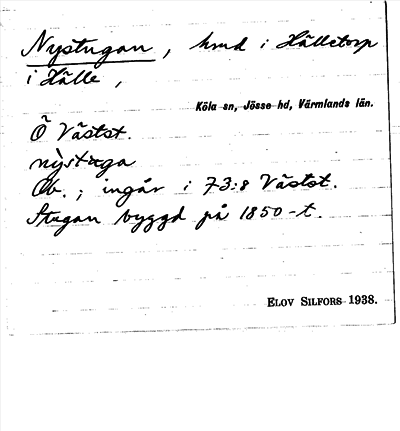 Nystugan, hmd i Hälletorp
i Hälle,
Köla sn, Jösse hd, Värmlands län.
Ö Västst.
nỳstuga
Ob.; ingår i 73:8 Västst.
Stugan byggd på 1850-t.
ELOV SILFORS 1938.